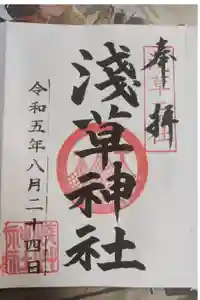 奉拝
浅草神社
令和五年八月二十四日